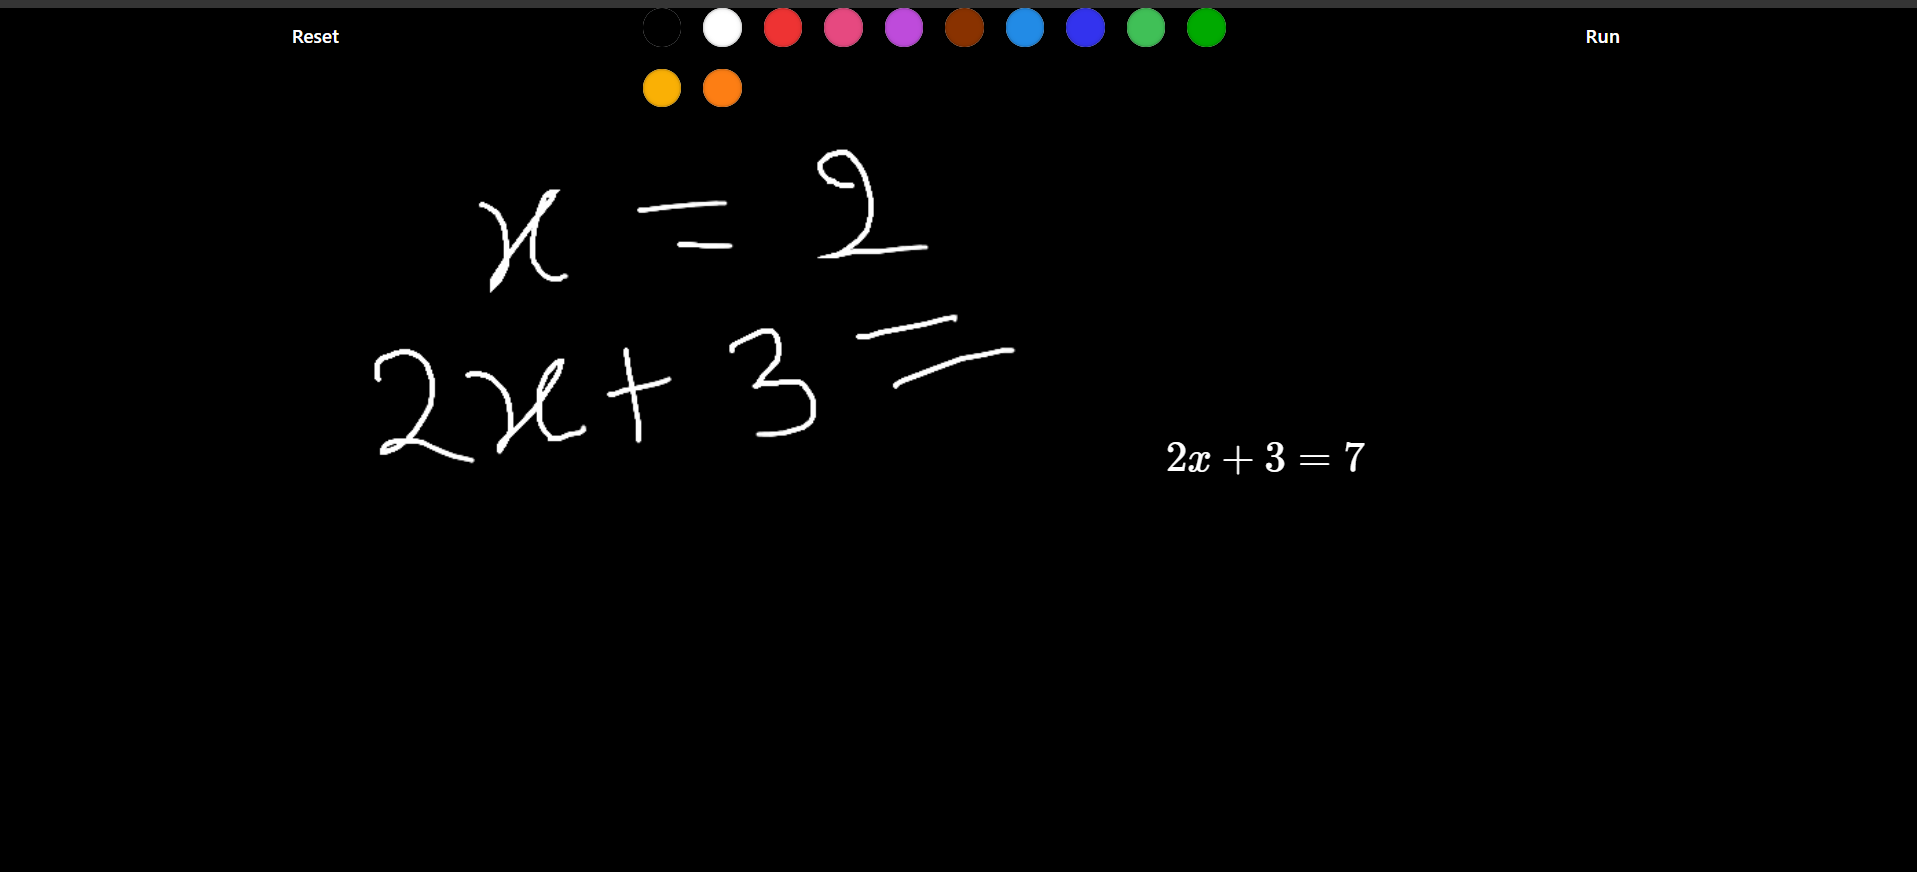 Reset
Run
x = 2
2x + 3 =
2x + 3 = 7